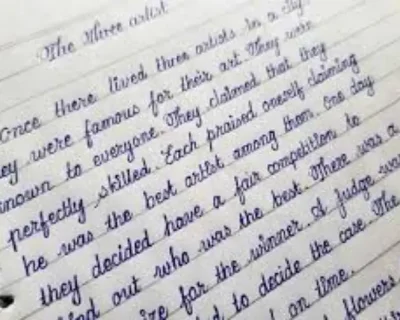 The three artist
Once there lived three artists in a city.
ey were famous for their art. They were
known to everyone. They claimed that they
perfectly skilled. Each praised oneself claiming
he was the best artist among them. One day
they decided have a fair competition to
find out who was the best. There was a
ize for the winner. A judge was
ed to decide the case. The
on time.
flowers